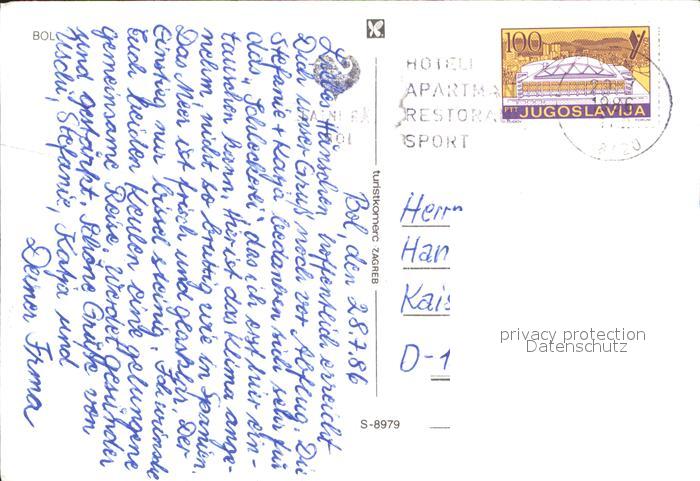 BOL
Bol, den 28.7.86
Liebes Hänschen, hoffentlich erreicht
Dich unser Gruß noch vor Abflug. Die
Stefanie + Katja bedanken sich sehr für
das "Schleckerei, das ich erst hier ein-
tauschen kann. Hier ist das Klima ange-
nehm nicht so brutig wie in Spanien.
Das Meer ist frisch und glasklar. Der
Einstieg nur bissel steinig. Ich wünsche
Euch beiden Keulen eine gelungene
gemeinsame Reise. Werdet gesünder
und gestärkt. Schöne Grüße von
Uschi, Stefanie, Katja und
Deiner Irma
turistkomerc ZAGREB
S-8979
HOTELI
APARTMA
RESTORA
SPORT
100
PTT JUGOSLAVIJA
1986
Herrn
Han
Kais
D-1
privacy protection
Datenschutz